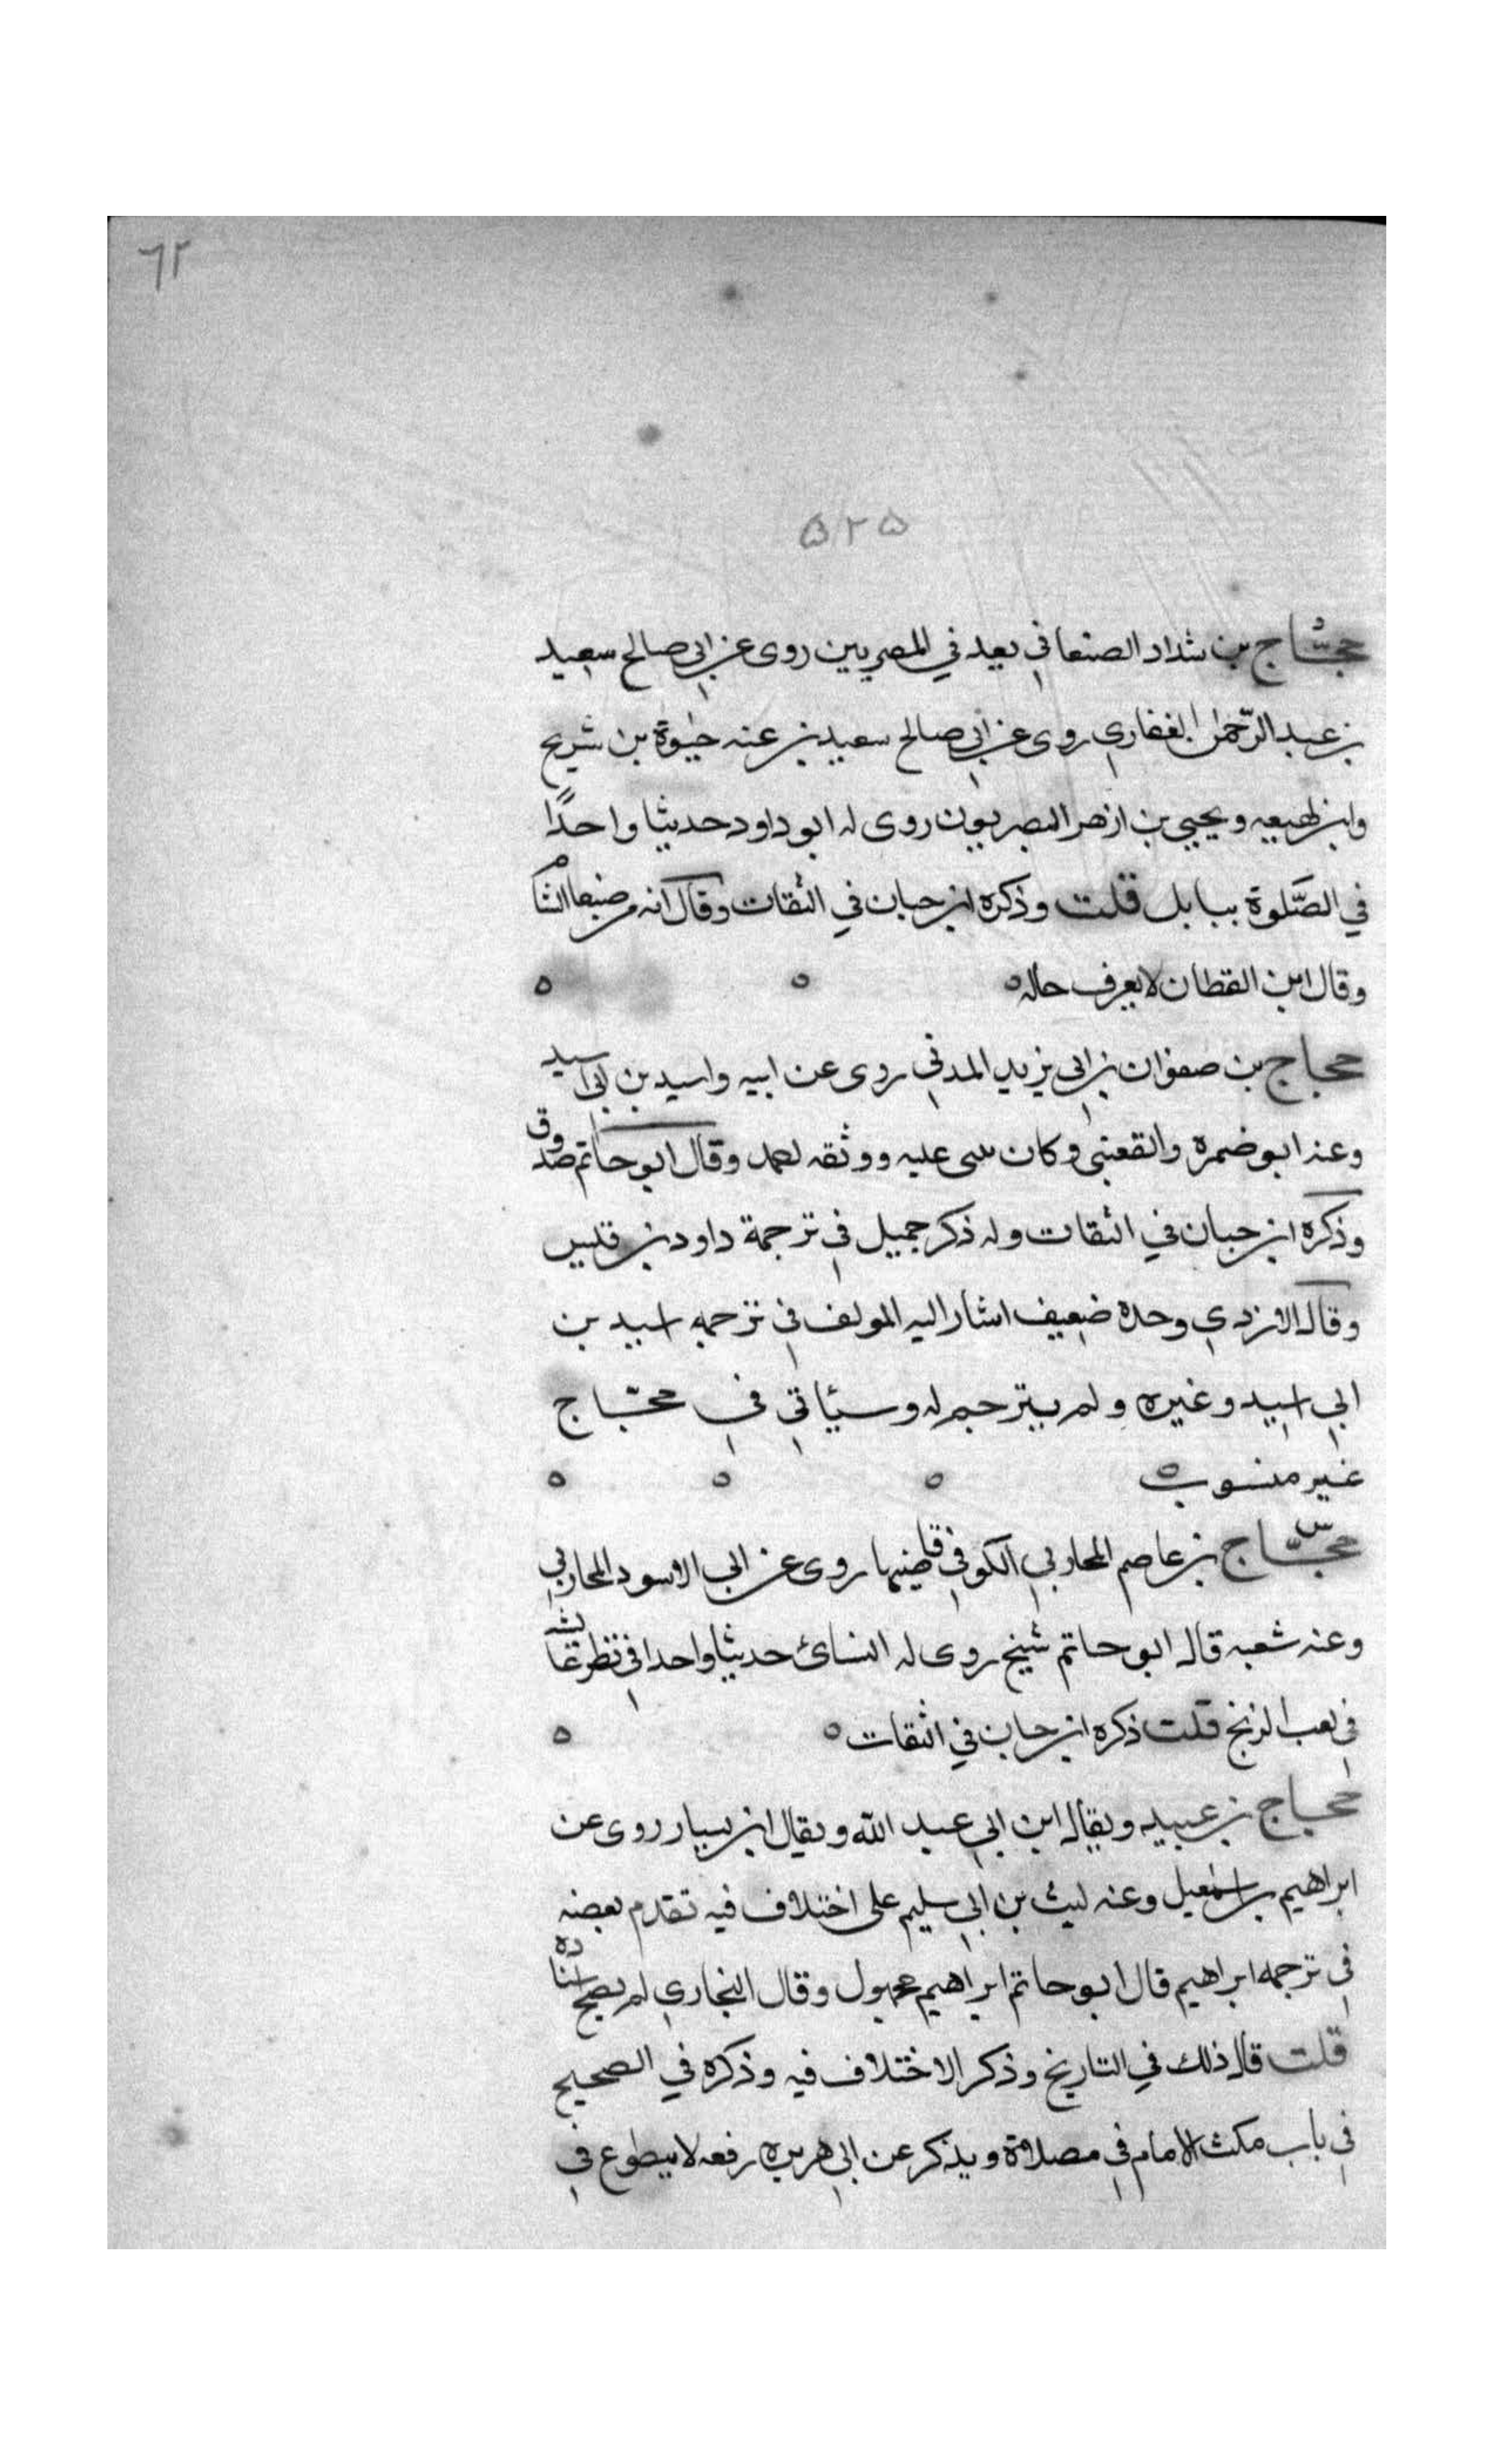 ٦٢
٥٢٥
د
حجّاج بن شداد الصنعاني يعد في المصريين روى عن ابي صالح سعيد
بن عبد الرّحمٰن الغفاري روى عن ابي صالح سعيد بن عنه حيٰوة بن شريح
وابن لهيعه ويحيى بن ازهر البصريون روى له ابو داود حديثا واحدًا
في الصّلوة ببابل قلت وذكره ابن حبان في الثقات وقال انه من صنعا الشام
وقال ابن القطان لا يعرف حاله ه ه ه
حجاج بن صفوان بن ابي يزيد المدني روى عن ابيه واسيد بن ابي اسيد
وعنه ابو ضمره والقعنبي وكان عليه ووثقه وقال ابو حاتم صدوق
وذكره ابن حبان في الثقات وله ذكر جميل في ترجمة داود بن قيس
وقال الازدي وحده ضعيف اشار اليه المولف في ترجمه اسيد بن
ابي اسيد وغيره ولم يترجم له وسيأتي في حجّاج
غير منسوب ه ه ه ه
س
حجّاج بن عاصم المحاربي الكوفي قاضيها روى عن ابي الاسود المحاربي
وعنه شعبه قال ابو حاتم شيخ روى له النسائ حديثا واحدا في نظر عائشه
في لعب الزنج قلت ذكره ابن حبان في الثقات ه ه
حجاج بن عبيد ويقال ابن ابي عبد الله ويقال ابن يسار روى عن
ابراهيم بن اسمٰعيل وعنه ليث بن ابي سليم على اختلاف فيه تقدم بعضه
في ترجمه ابراهيم قال ابو حاتم ابراهيم مجهول وقال البخاري لم يصح اسناده
قلت قال ذلك في التاريخ وذكر الاختلاف فيه وذكره في الصحيح
في باب مكث الامام في مصلاه ويذكر عن ابي هريره رفعه لا يتطوع في